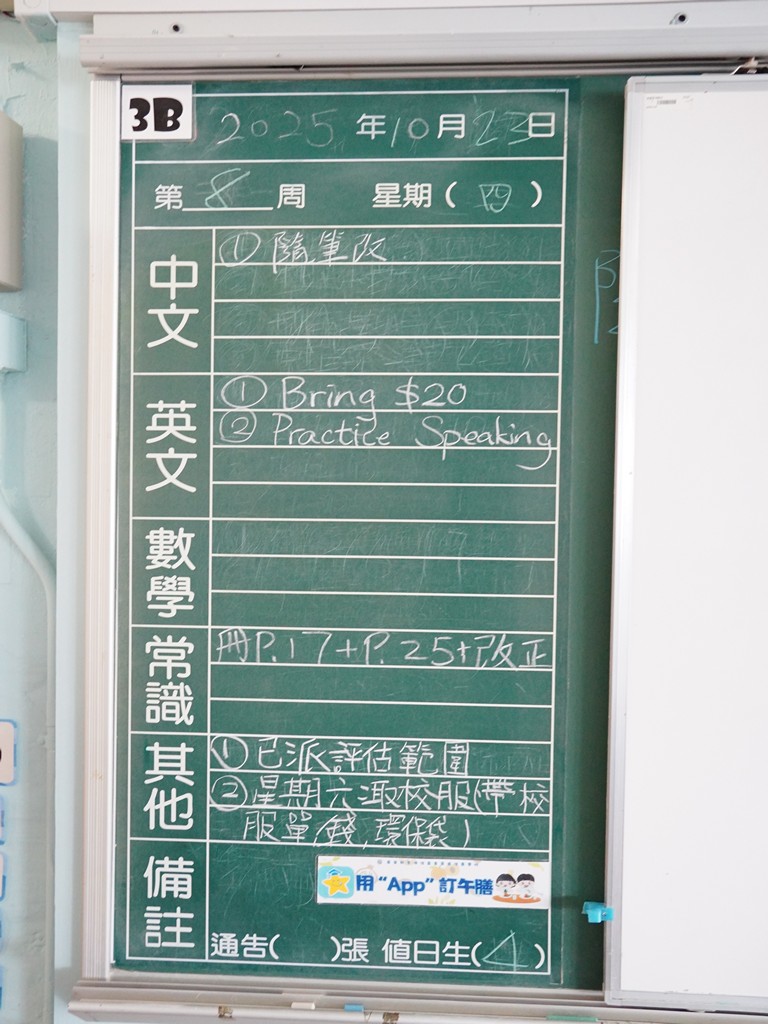 3B
2025年10月23日
第8周 星期(四)
中文
① 隨筆改
英文
① Bring $20
② Practice Speaking
數學
常識
冊P.17+P.25+改正
其他
① 已派評估範圍
② 星期六取校服(帶校
服單,錢,環保袋)
備註
用“App”訂午膳
通告( )張 值日生(4)